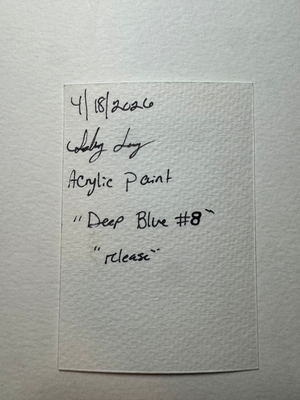 4/18/2026
Acrylic Paint
"Deep Blue #8"
"release"